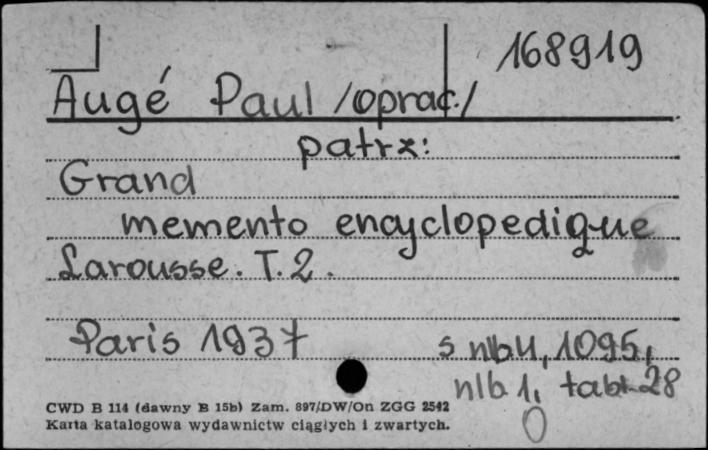 168919
Augé Paul /oprac./
patrz:
Grand
memento encyclopedique
Larousse. T. 2.
Paris 1937 s nlb 4, 1095,
nlb 1, tabl. 28
0
CWD B 114 (dawny B 15b) Zam. 897/DW/On ZGG 2542
Karta katalogowa wydawnictw ciągłych i zwartych.